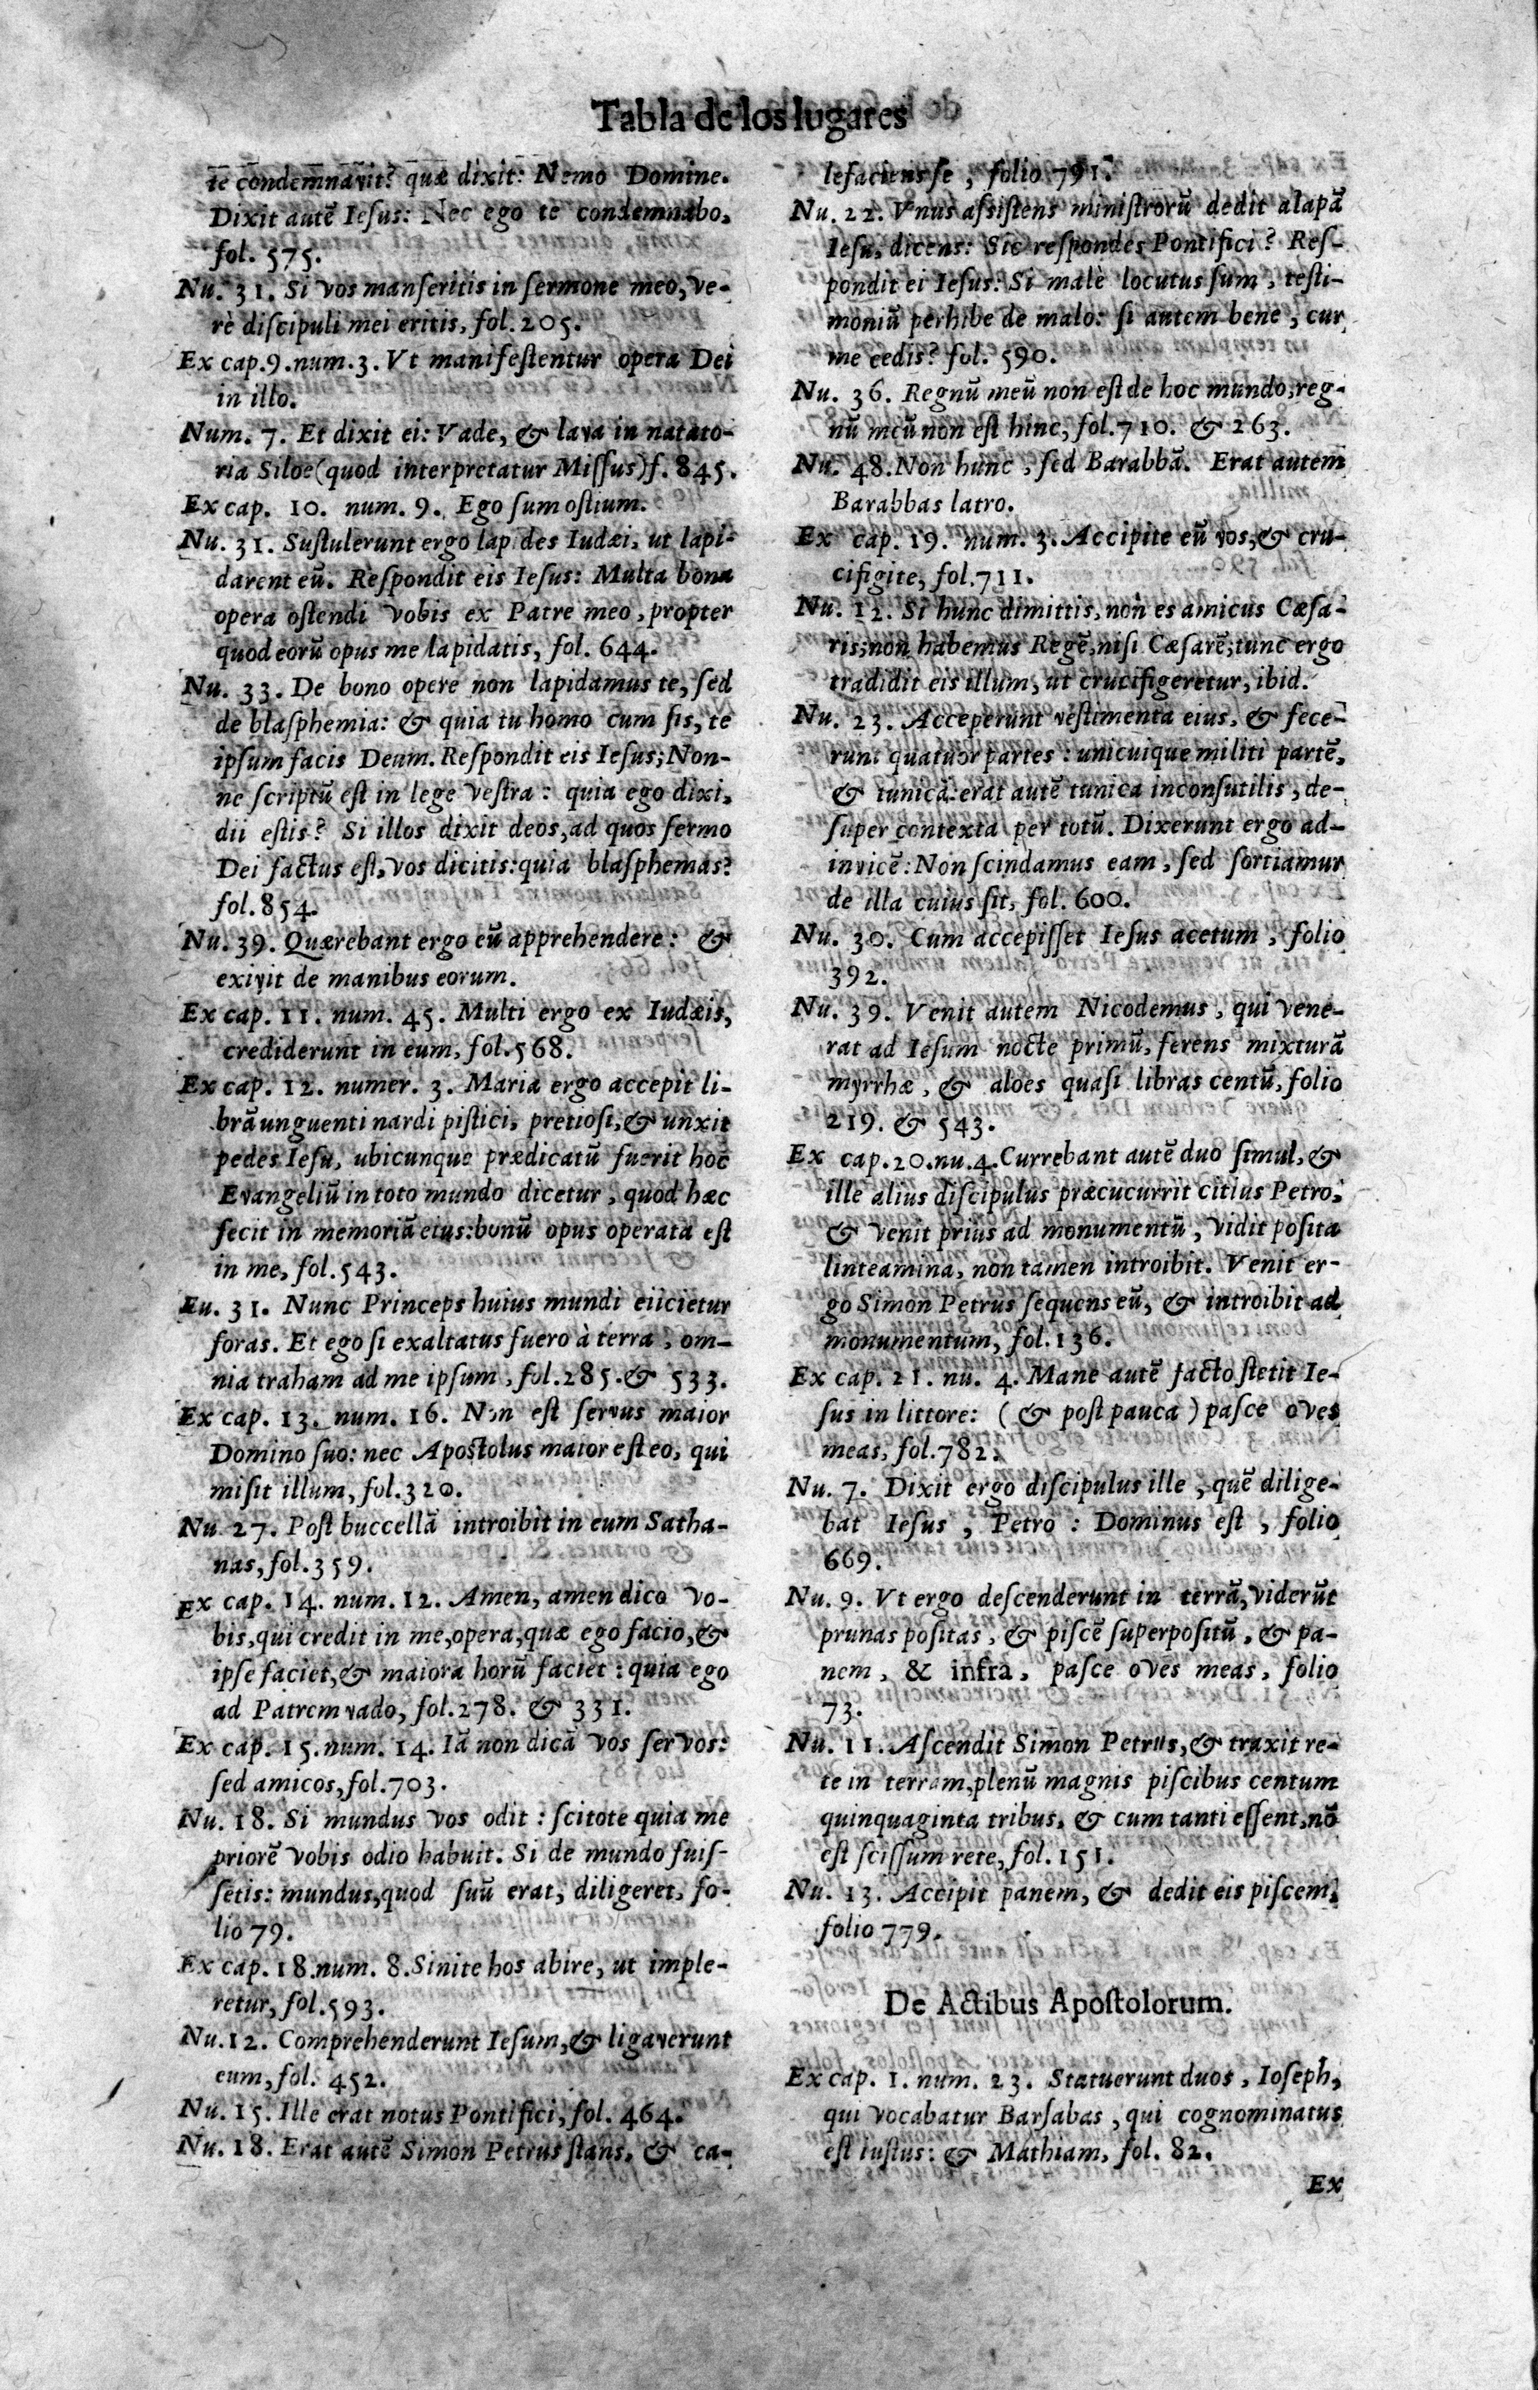 Tabla de los lugares
te condemnavit? quæ dixit: Nemo Domine.
Dixit autē Iesus: Nec ego te condemnabo,
fol. 575.
Nu. 31. Si vos manseritis in sermone meo, ve-
rè discipuli mei eritis, fol. 205.
Ex cap. 9. num. 3. Vt manifestentur opera Dei
in illo.
Num. 7. Et dixit ei: Vade, & lava in natato-
ria Siloe (quod interpretatur Missus) f. 845.
Ex cap. 10. num. 9. Ego sum ostium.
Nu. 31. Sustulerunt ergo lapides Iudæi, ut lapi-
darent eū. Respondit eis Iesus: Multa bona
opera ostendi vobis ex Patre meo, propter
quod eorū opus me lapidatis, fol. 644.
Nu. 33. De bono opere non lapidamus te, sed
de blasphemia: & quia tu homo cum sis, te
ipsum facis Deum. Respondit eis Iesus; Non-
ne scriptū est in lege vestra: quia ego dixi,
dii estis? Si illos dixit deos, ad quos sermo
Dei factus est, vos dicitis: quia blasphemas?
fol. 854.
Nu. 39. Quærebant ergo eū apprehendere: &
exivit de manibus eorum.
Ex cap. 11. num. 45. Multi ergo ex Iudæis,
crediderunt in eum, fol. 568.
Ex cap. 12. numer. 3. Maria ergo accepit li-
brā unguenti nardi pistici, pretiosi, & unxit
pedes Iesu, ubicunque prædicatū fuerit hoc
Evangeliū in toto mundo dicetur, quod hæc
fecit in memoriā eius: bonū opus operata est
in me, fol. 543.
Eu. 31. Nunc Princeps huius mundi eiicietur
foras. Et ego si exaltatus fuero à terra, om-
nia traham ad me ipsum, fol. 285. & 533.
Ex cap. 13. num. 16. Non est servus maior
Domino suo: nec Apostolus maior est eo, qui
misit illum, fol. 320.
Nu 27. Post buccellā introibit in eum Satha-
nas, fol. 359.
Ex cap. 14. num. 12. Amen, amen dico vo-
bis, qui credit in me, opera, quæ ego facio, &
ipse faciet, & maiora horū faciet: quia ego
ad Patrem vado, fol. 278. & 331.
Ex cap. 15. num. 14. Iā non dicā vos servos:
sed amicos, fol. 703.
Nu. 18. Si mundus vos odit: scitote quia me
priorē vobis odio habuit. Si de mundo fuis-
setis: mundus, quod suū erat, diligeret, fo-
lio 79.
Ex cap. 18. num. 8. Sinite hos abire, ut imple-
retur, fol. 593.
Nu. 12. Comprehenderunt Iesum, & ligaverunt
eum, fol. 452.
Nu. 15. Ille erat notus Pontifici, fol. 464.
Nu. 18. Erat autē Simon Petrus stans, & ca-
lefaciens se, folio 791.
Nu. 22. Vnus assistens ministrorū dedit alapā
Iesu, dicens: Sic respondes Pontifici? Res-
pondit ei Iesus: Si malè locutus sum, testi-
moniū perhibe de malo: si autem bene, cur
me cedis? fol. 590.
Nu. 36. Regnū meū non est de hoc mundo, reg-
nū meū non est hinc, fol. 710. & 263.
Nu. 48. Non hunc, sed Barabbā. Erat autem
Barabbas latro.
Ex cap. 19. num. 3. Accipite eū vos, & cru-
cifigite, fol. 711.
Nu. 12. Si hunc dimittis, non es amicus Cæsa-
ris; non habemus Regē, nisi Cæsarē; tunc ergo
tradidit eis illum, ut crucifigeretur, ibid.
Nu. 23. Acceperunt vestimenta eius, & fece-
runt quatuor partes: unicuique militi partē,
& tunicā: erat autē tunica inconsutilis, de-
super contexta per totū. Dixerunt ergo ad-
invicē: Non scindamus eam, sed sortiamur
de illa cuius sit, fol. 600.
Nu. 30. Cum accepisset Iesus acetum, folio
392.
Nu. 39. Venit autem Nicodemus, qui vene-
rat ad Iesum nocte primū, ferens mixturā
myrrhæ, & aloes quasi libras centū, folio
219. & 543.
Ex cap. 20. nu. 4. Currebant autē duo simul, &
ille alius discipulus præcucurrit citius Petro,
& venit prius ad monumentū, vidit posita
linteamina, non tamen introibit. Venit er-
go Simon Petrus sequens eū, & introibit ad
monumentum, fol. 136.
Ex cap. 21. nu. 4. Mane autē facto stetit Ie-
sus in littore: (& post pauca) pasce oves
meas, fol. 782.
Nu. 7. Dixit ergo discipulus ille, quē dilige-
bat Iesus, Petro: Dominus est, folio
669.
Nu. 9. Vt ergo descenderunt in terrā, viderūt
prunas positas, & piscē superpositū, & pa-
nem, & infra, pasce oves meas, folio
73.
Nu. 11. Ascendit Simon Petrus, & traxit re-
te in terram, plenū magnis piscibus centum
quinquaginta tribus, & cum tanti essent, nō
est scissum rete, fol. 151.
Nu. 13. Accipit panem, & dedit eis piscem,
folio 779.
De Actibus Apostolorum.
Ex cap. 1. num. 23. Statuerunt duos, Ioseph,
qui vocabatur Barsabas, qui cognominatus
est iustus: & Mathiam, fol. 82.
Ex